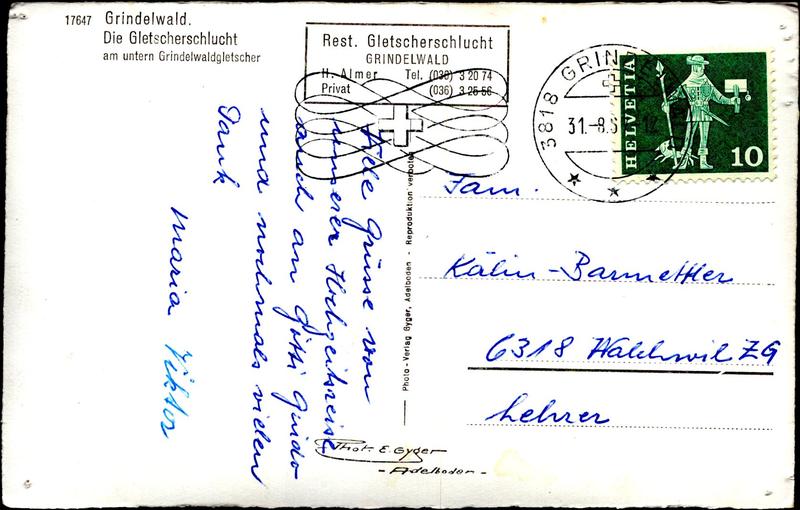 17647 Grindelwald.
Die Gletscherschlucht
am untern Grindelwaldgletscher
Rest. Gletscherschlucht
GRINDELWALD
H. Almer Tel. (036) 3 20 74
Privat (036) 3 25 56
3818 GRINDELWALD
31.-8.6
HELVETIA
10
Viele Grüsse von
unserer Hochzeitsreise
auch an Götti Guido
und nochmals vielen
Dank
Maria Viktor
Photo-Verlag Gyger, Adelboden - Reproduktion verboten
Fam.
Kälin-Barmettler
6318 Walchwil ZG
Lehrer
Phot. E. Gyger
- Adelboden -